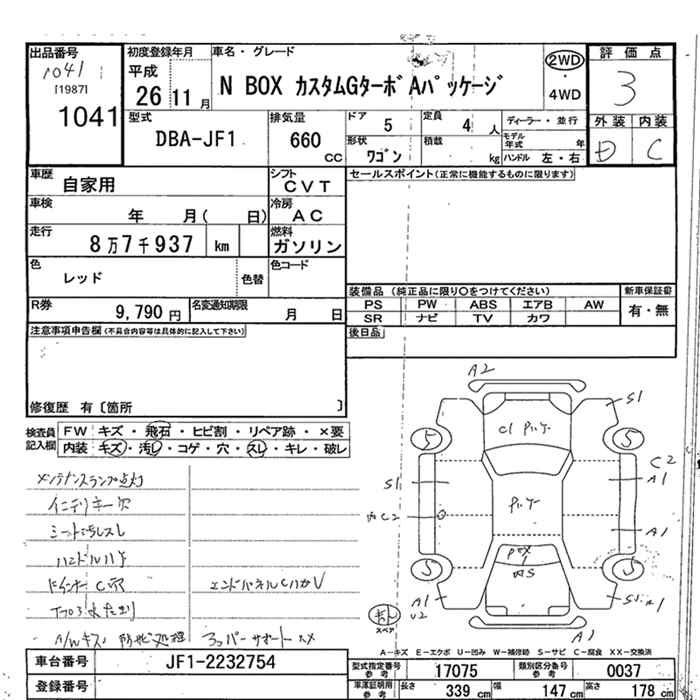 出品番号 初度登録年月 車名・グレード 評価点
1041 [1987] 1041
平成 26 11月
N BOX カスタムGターボAパッケージ
2WD・4WD
3
外装 内装
C
型式 DBA-JF1
排気量 660 CC
ドア 5 定員 4人 ディーラー・並行
形状 ワゴン 積載 kg モデル年式 年
ハンドル 左・右
車歴 自家用 シフト CVT セールスポイント(正常に機能するものに限ります)
車検 年 月( 日) 冷房 AC
走行 8万7千937 km 燃料 ガソリン
色 レッド 色替 色コード
装備品(純正品に限り○をつけてください) 新車保証書
PS PW ABS エアB AW 有・無
SR ナビ TV カワ
R券 9,790円 名変通知期限 月 日
後日品
注意事項申告欄(不具合内容等は具体的に記入して下さい)
修復歴 有〔箇所 〕
検査員記入欄 FW キズ・飛石・ヒビ割・リペア跡・×要
内装 キズ・汚レ・コゲ・穴・スレ・キレ・破レ
メンテナンスランプ点灯
インテリキー穴
シート汚レスレ
ハンドルハゲ
C穴 エンドパネル
A/Wキズ 防サビ処理
A2
S1
5 5
C2
A1
S1
C2
A1
5 5
A1
A1
A-キズ E-エクボ U-凹み W-補修跡 S-サビ C-腐食 XX-交換済
スペア
車台番号 JF1-2232754
登録番号
型式指定番号 参考 17075 類別区分番号 参考 0037
車庫証明用 参考 長さ 339 cm 幅 147 cm 高さ 178 cm